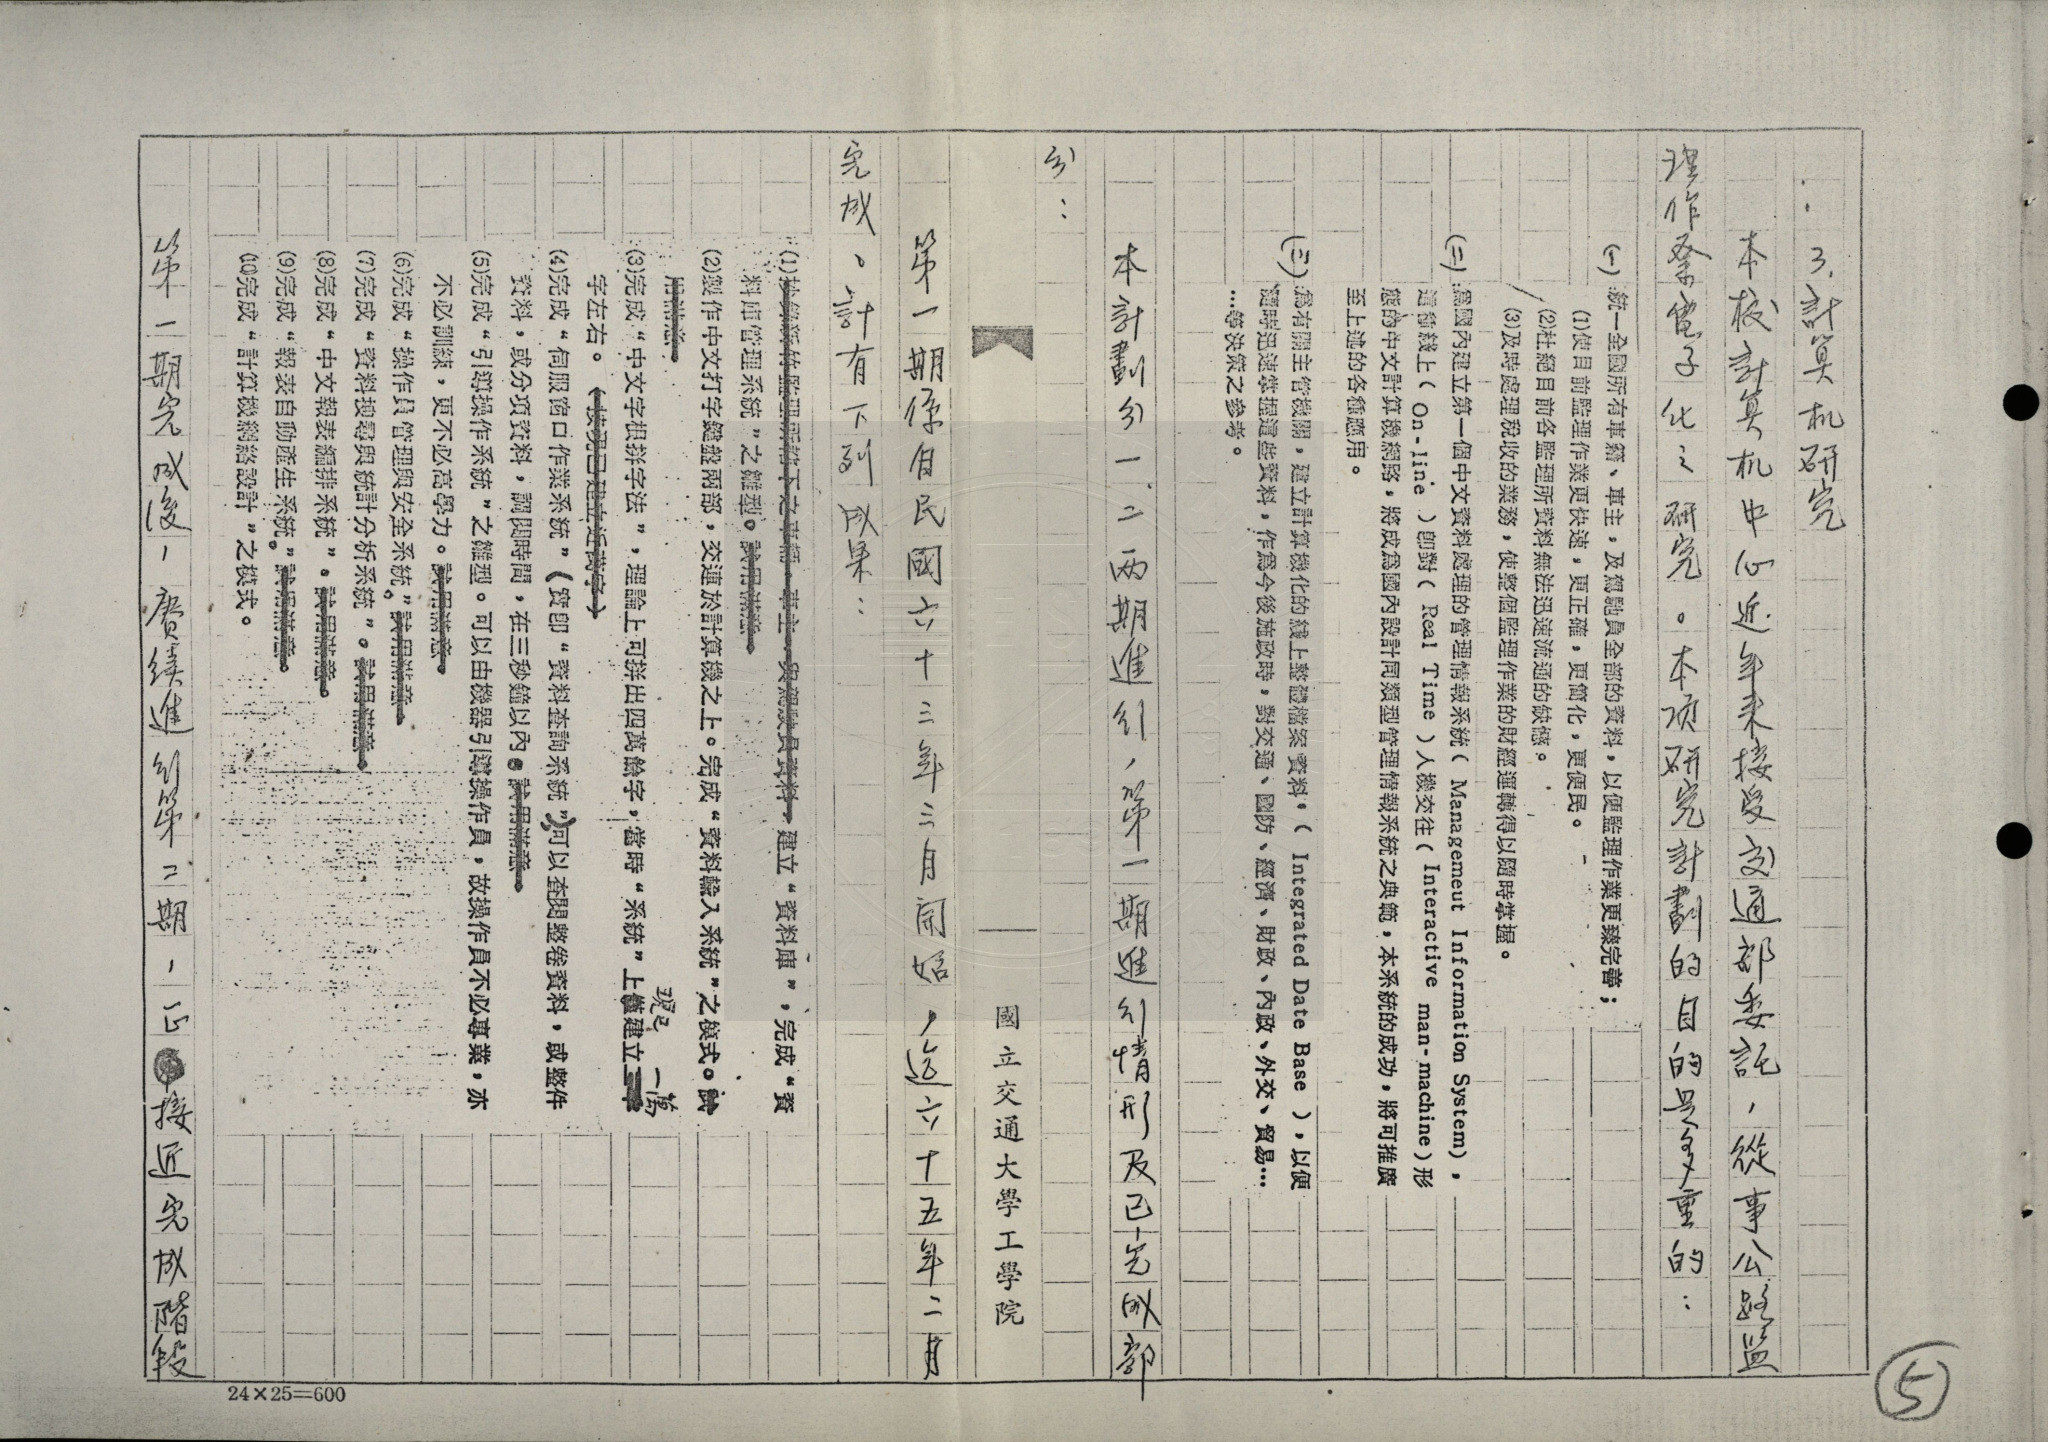 3. 計算机研究
本校計算机中心近年来接受交通部委託，從事公路監
理作業電子化之研究。本項研究計劃的目的是多重的：
(一)統一全國所有車籍、車主，及駕駛員全部的資料，以便監理作業更臻完善；
(1)使目前監理作業更快速，更正確，更簡化，更便民。
(2)杜絕目前各監理所資料無法迅速流通的缺憾。
(3)及時處理稅收的業務，使整個監理作業的財經運轉得以隨時掌握。
(二)為國內建立第一個中文資料處理的管理情報系統( Managemeut Information System)，
這種綫上( On-line )卽對( Real Time )人機交往( Interactive man-machine)形
態的中文計算機網路，將成為國內設計同類型管理情報系統之典範，本系統的成功，將可推廣
至上述的各種應用。
(三)為有關主管機關，建立計算機化的綫上整體檔案資料，( Integrated Date Base )，以便
隨時迅速掌握這些資料，作為今後施政時，對交通、國防、經濟、財政、內政、外交、貿易…
…等決策之參考。
本計劃分一.二兩期進行，第一期進行情形及已完成部
分：
國立交通大學工學院
第一期係自民國六十三年三月開始，迄六十五年二月
完成。計有下列成果：
(1)抄錄新竹監理所轄下之車輛，車主，與駕駛員資料，建立“資料庫”，完成“資
料庫管理系統”之雛型。試用滿意。
(2)製作中文打字鍵盤兩部，交連於計算機之上。完成“資料輸入系統”之模式。試
用滿意。
(3)完成“中文字根拼字法”，理論上可拼出四萬餘字，當時“系統”上現已建立一萬
字左右。(按現已建立近萬字)
(4)完成“伺服窗口作業系統”(實卽“資料查詢系統”)可以查閱整卷資料，或整件
資料，或分項資料，調閱時間，在三秒鐘以內。試用滿意。
(5)完成“引導操作系統”之雛型。可以由機器引導操作員，故操作員不必專業，亦
不必訓練，更不必高學力。試用滿意。
(6)完成“操作員管理與安全系統”。試用滿意。
(7)完成“資料搜尋與統計分析系統”。試用滿意。
(8)完成“中文報表編排系統”。試用滿意。
(9)完成“報表自動產生系統”。試用滿意。
(10)完成“計算機網路設計”之模式。
第一期完成後，賡續進行第二期，已接近完成階段
24×25=600
5